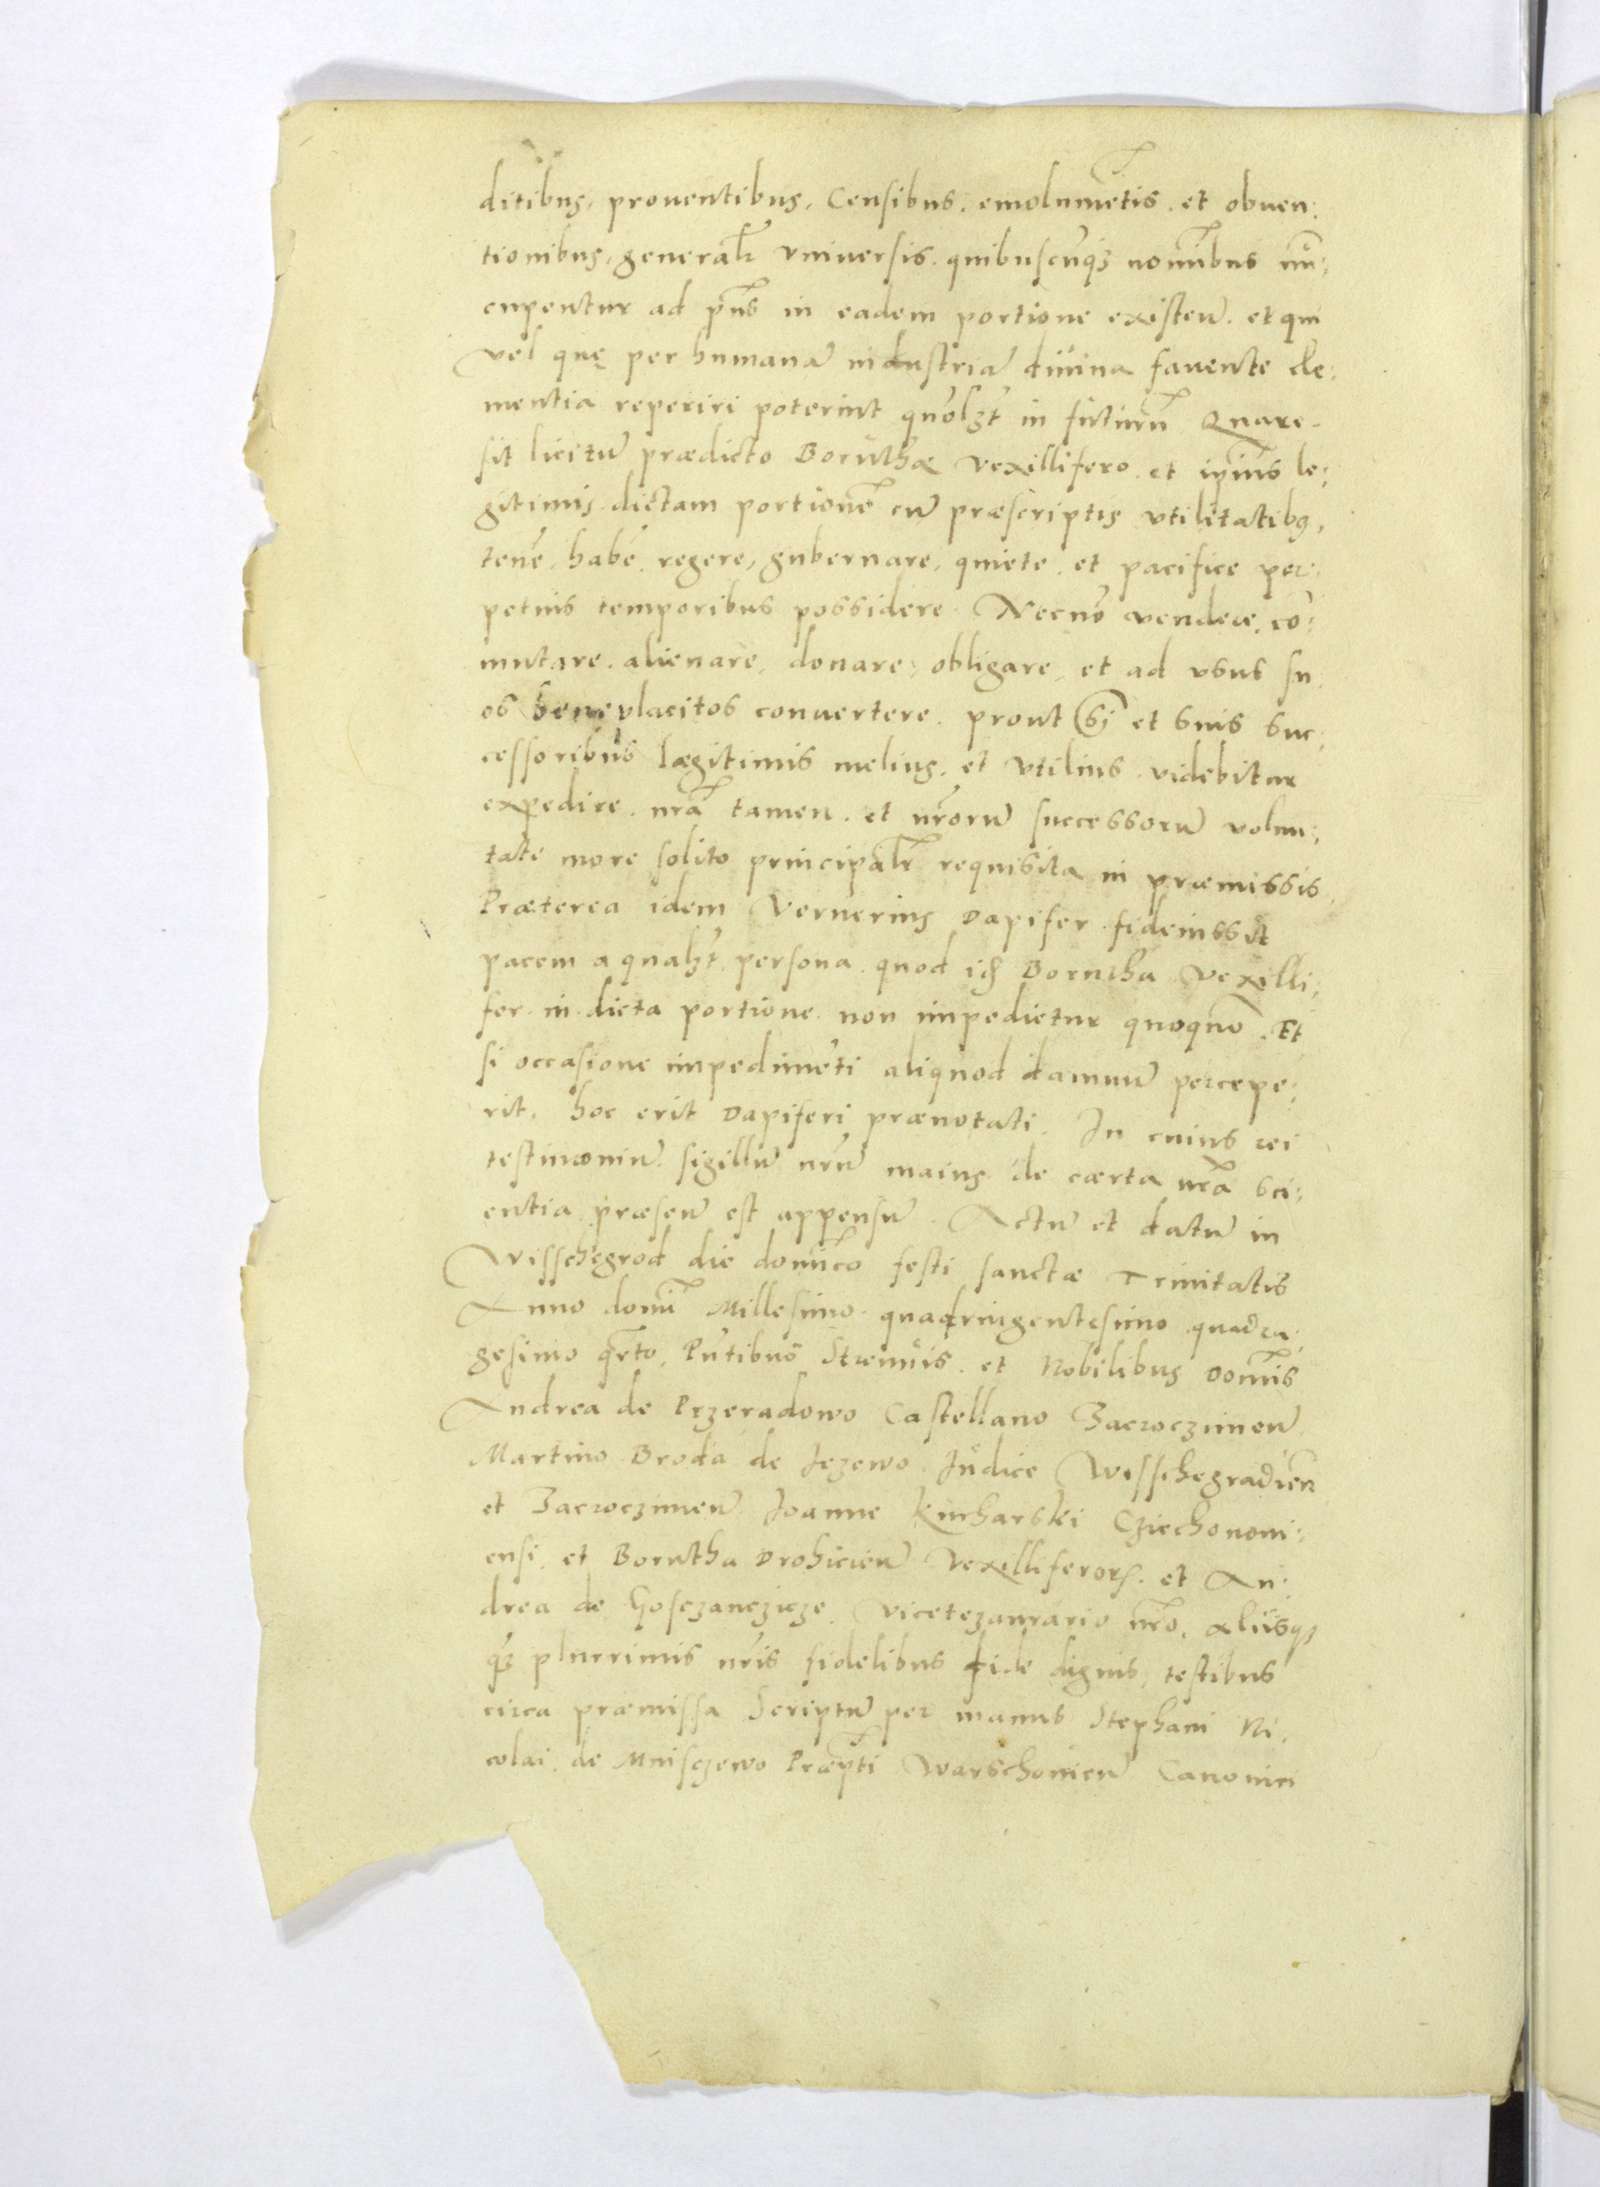 ditibus, prouentibus, Censibus, emolumẽtis, et obuen:
tionibus, generalr̃ vniuersis, quibuscũqʒ nomĩbus nũ:
cupentur ad pñs in eadem portione existeñ. et qui
vel quę per humanã industriã diuina fauente cle:
mentia reperiri poterint quõlʒt in futurũ Quare
sit licitũ prædicto Boruthæ vexillifero et ipĩus le:
gitimis dictam portionẽ cũ præscriptis vtilitatibꝯ,
tenẽ, habẽ, regere, gubernare, quiete, et pacifice per:
petuis temporibus possidere. Necnõ vendere, cõ:
mutare, alienare, donare, obligare, et ad vsus su:
os beneplacitos conuertere, prout sĩ et suis suc:
cessoribus lægitimis melius, et vtilius videbitur
expedire. nrã tamen et nrõrũ successorũ volun:
tate more solito principalr̃ requisita in præmissis.
Præterea idem Vernerius Dapifer fideiussit
pacem a qualʒt persona, quod id̃ Borutha Vexilli:
fer in dicta portione non impedietur quoquõ. Et
si occasione impedimẽti aliquod damnũ percepe:
rit, hoc erit Dapiferi prænotati. In cuius rei
testimoniũ sigillũ nrũ maius de cærta nrã sci:
entia præseñ est appensũ. Actũ et datũ in
Wisschegrod die domĩco festi sanctæ Trinitatis
Anno domĩ Millesimo quadringentesimo quadra:
gesimo qrto, Pñtibus Strenuis et Nobilibus Domĩs
Andrea de Przeradowo Castellano Zacroczimeñ
Martino Broda de Jezewo Judice Wisschegradieñ
et Zacroczimeñ Joanne Kucharski Cziechonoui:
ensi, et Borutha Drohicieñ Vexilliferorꝫ. et An:
drea de Gosczanczicze Vicetezaurario nrõ, Aliisqʒ
qʒ plurrimis nrĩs fidelibus fide dignis, testibus
circa præmissa Scriptũ per manus Stephani Ni:
colai de Mnisczewo Præpti Warschouieñ Canonici